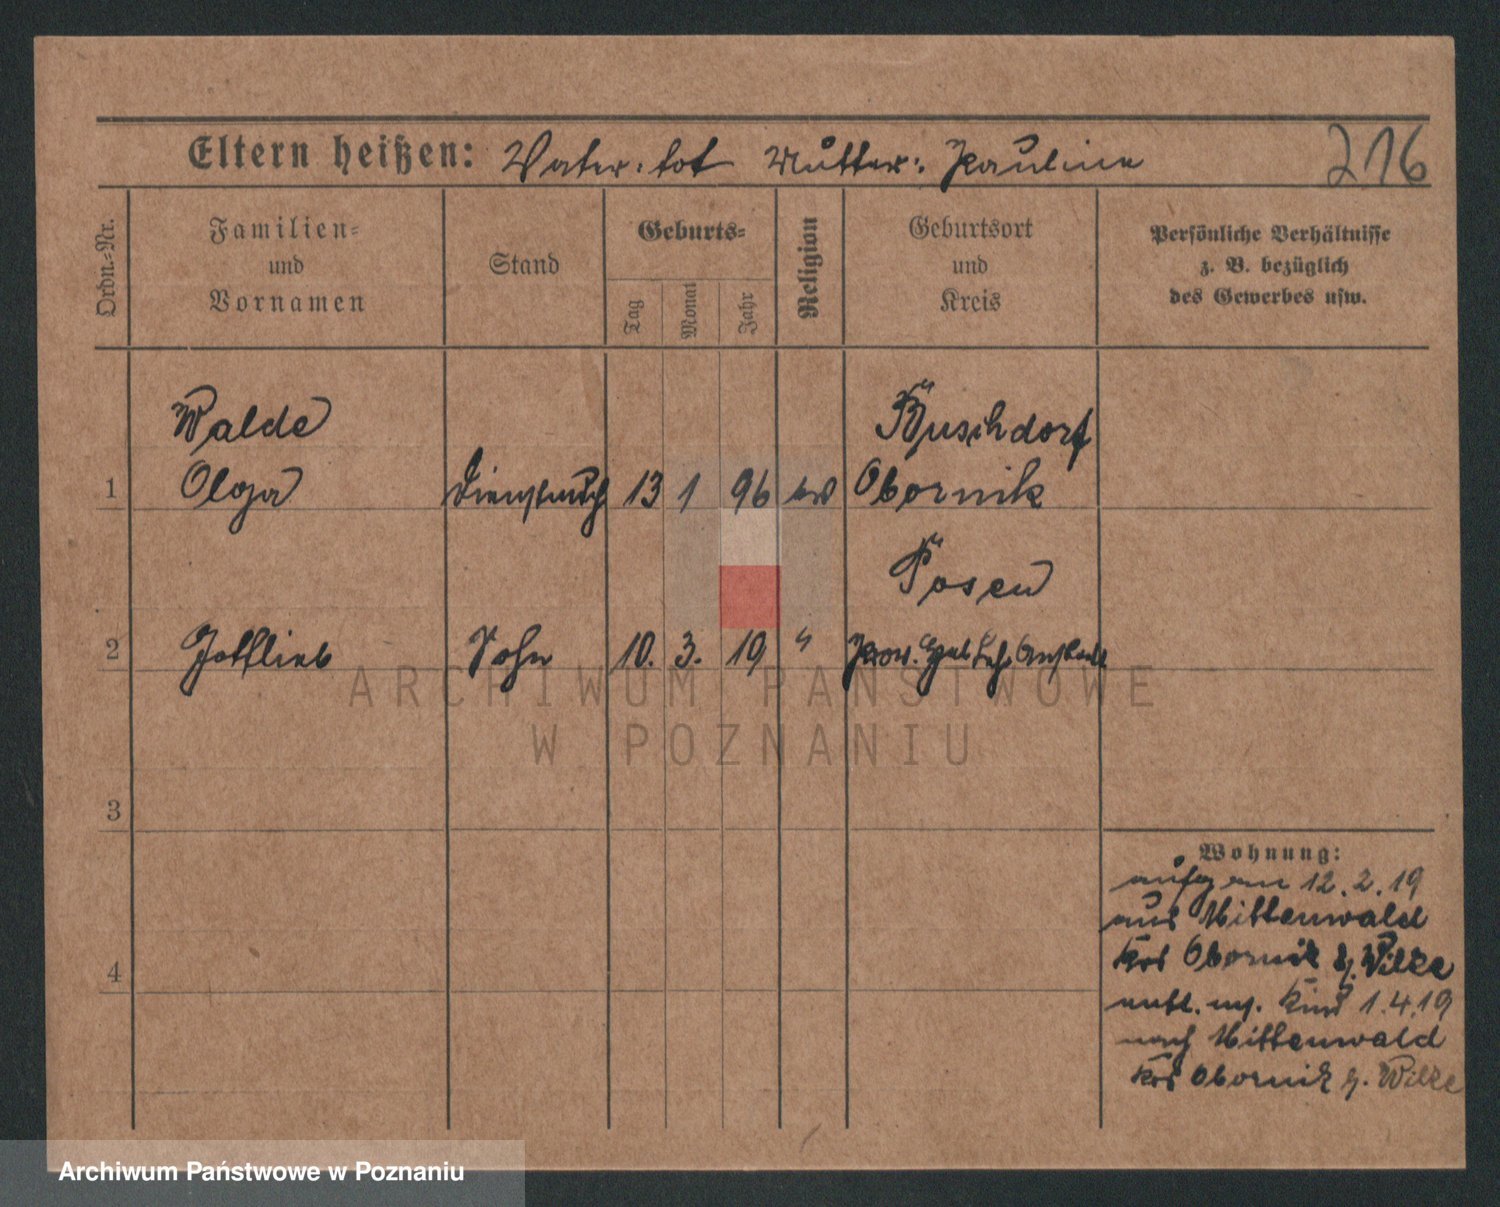 Eltern heißen: Vater: tot Mutter: Pauline
216
Ordn.-Nr.
Familien-
und
Vornamen
Stand
Geburts-
Tag
Monat
Jahr
Religion
Geburtsort
und
Kreis
Persönliche Verhältnisse
z. B. bezüglich
des Gewerbes usw.
Walde
Buschdorf
1 Olga Dienstmdch 13 1 96 ev Obornik
Posen
2 Gottlieb Sohn 10. 3. 19 " Prov. Heb. Lehr Anstalt
ARCHIWUM PAŃSTWOWE
W POZNANIU
3
Wohnung:
aufg am 12.2.19
aus Mittenwald
Krs Obornik b. Wilke
4
entl. m. Kind 1.4.19
nach Mittenwald
Krs Obornik b. Wilke
Archiwum Państwowe w Poznaniu